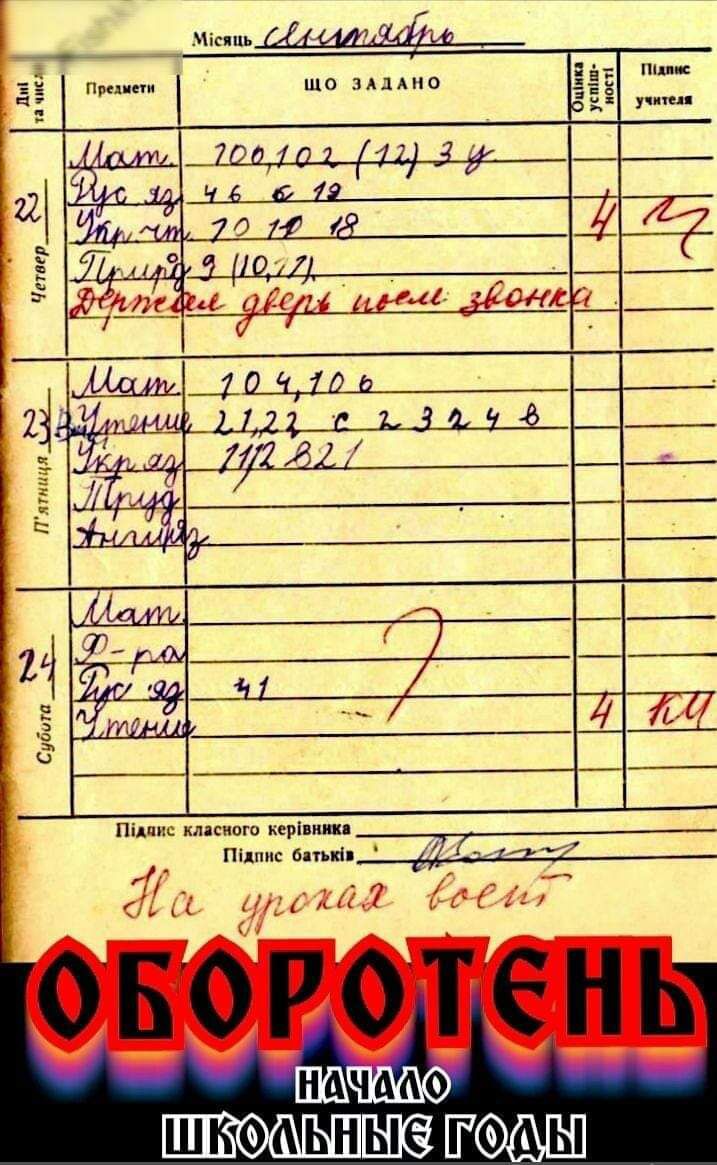 Місяць сентябрь
Дні та число
Предмети
ЩО ЗАДАНО
Оцінка успіш-ності
Підпис учителя
22
Четвер
Мат. 100,102 (12) 3 у
Рус яз 4 6 6 19
Укр. чт. 70 18
Природ 9 (10,11).
Держал дверь после звонка
4
23
П'ятниця
Мат. 104,106
Чтение 21,22 с 23 24 в
Укр яз
Труд
Англ яз
24
Субота
Мат.
Ф-ра
Рус яз 41
Чтение
4
?
Підпис класного керівника
Підпис батьків
На уроках воет
ОБОРОТЕНЬ
НАЧАЛО
ШКОЛЬНЫЕ ГОДЫ